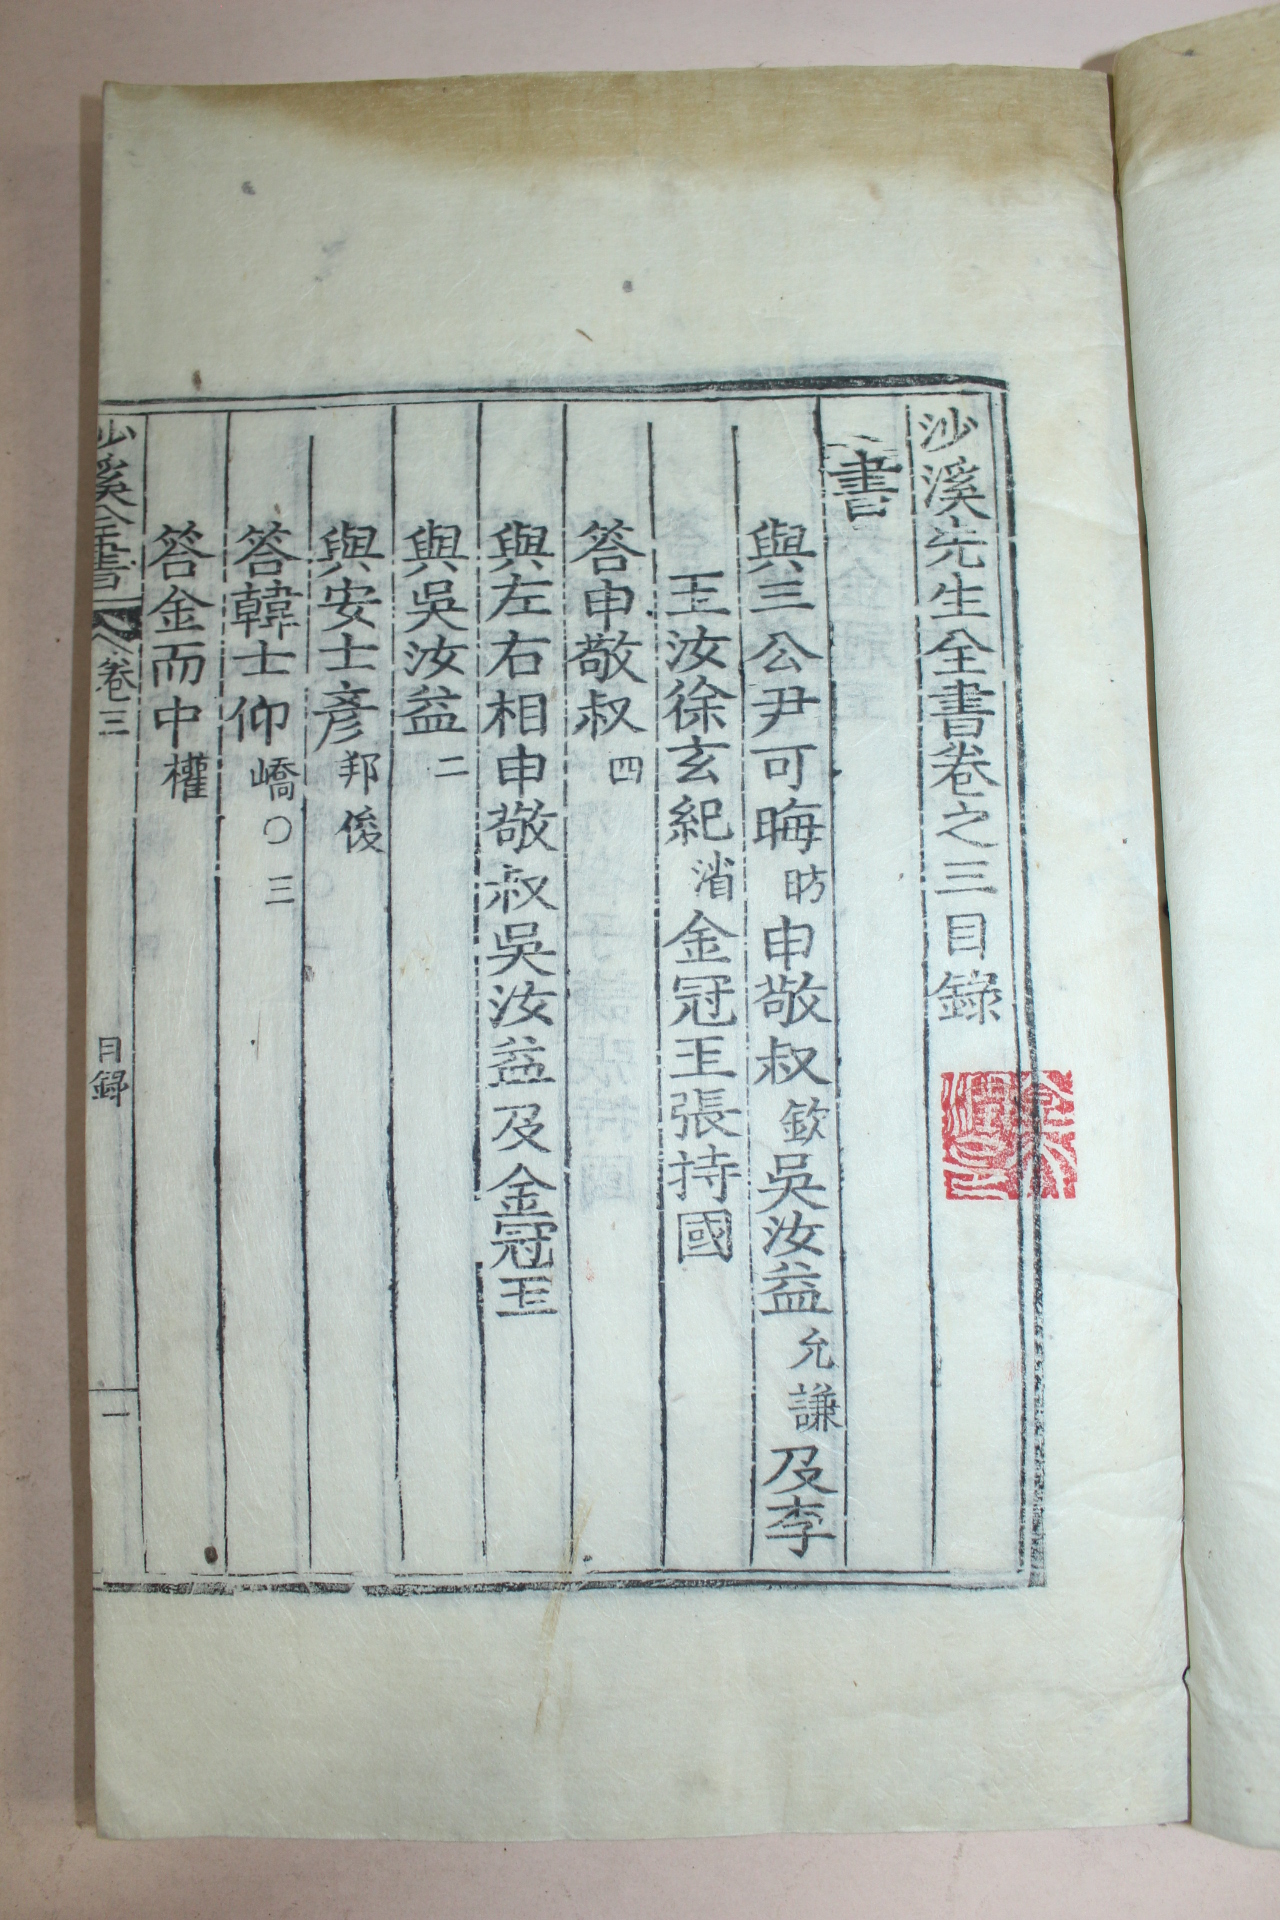 沙溪先生全書卷之三目錄
書
與三公尹可晦昉申敬叔欽吳汝益允謙及李
玉汝徐玄紀渻金冠玉張持國
答申敬叔四
與左右相申敬叔吳汝益及金冠玉
與吳汝益二
與安士彥邦俊
答韓士仰嶠○三
答金而中權
沙溪全書 卷三 目錄 一